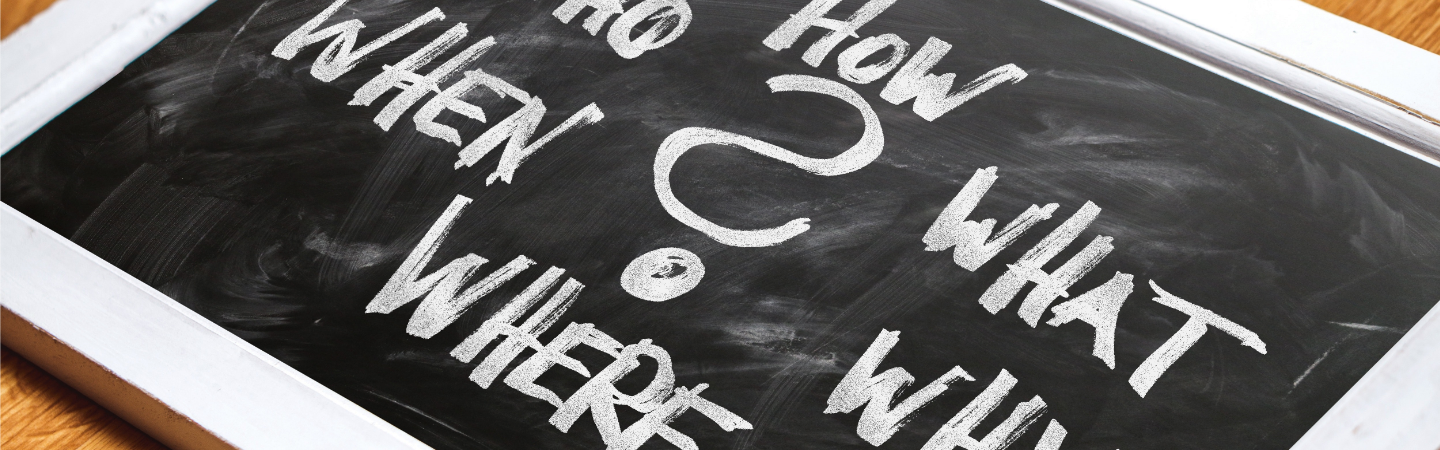 HOW
WHEN
?
WHAT
WHERE